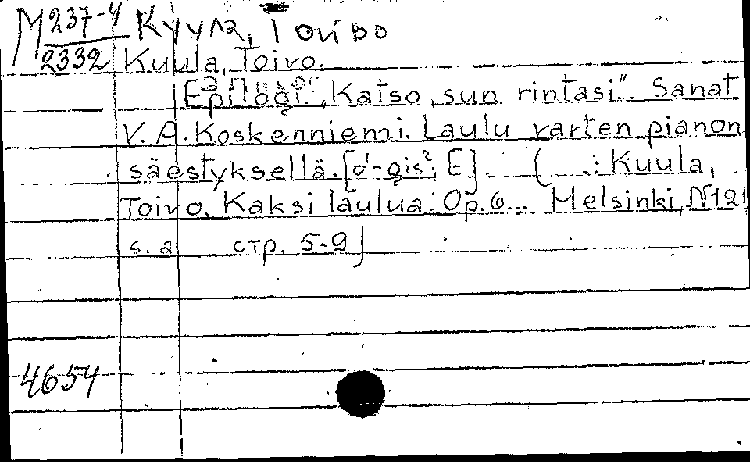 М 237-4 Куула, Тойво
2332 Kuula, Toivo.
Epilogi. „Katso, sun rintasi”. Sanat
V. A. Koskenniemi. Laulu varten pianon
säestyksellä. [d'-gis², E]. (...: Kuula,
Toivo. Kaksi laulua. Op. 6... Helsinki, N 121
s. a. стр. 5-9]
4654